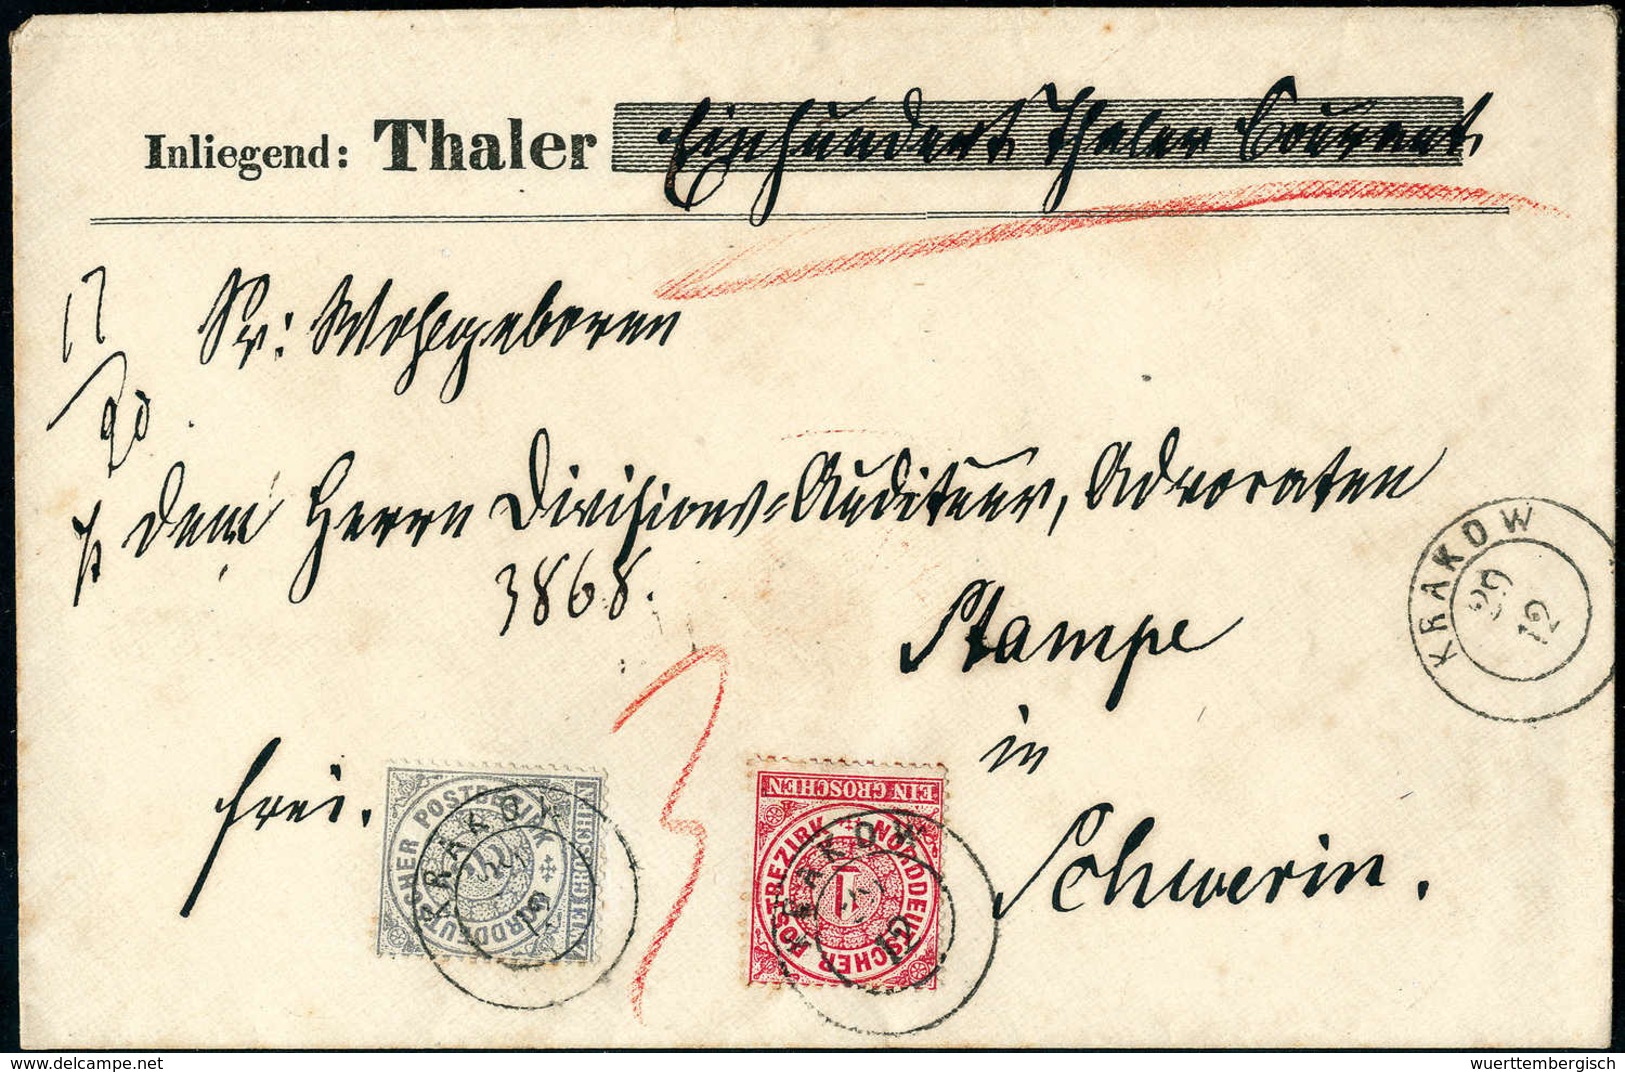 Inliegend: Thaler Einhundert Thaler Courant
17
90
Sr: Wohlgeboren
dem Herrn Divisions-Auditeur, Advocaten
3868.
Stampe
in
Schwerin.
frei.
3
KRAKOW
29
12
NORDDEUTSCHER POSTBEZIRK
ZWEI GROSCHEN
2
KRAKOW
29
12
EIN GROSCHEN
NORDDEUTSCHER POSTBEZIRK
1
KRAKOW
29
12
delcampe.net
wuerttembergisch